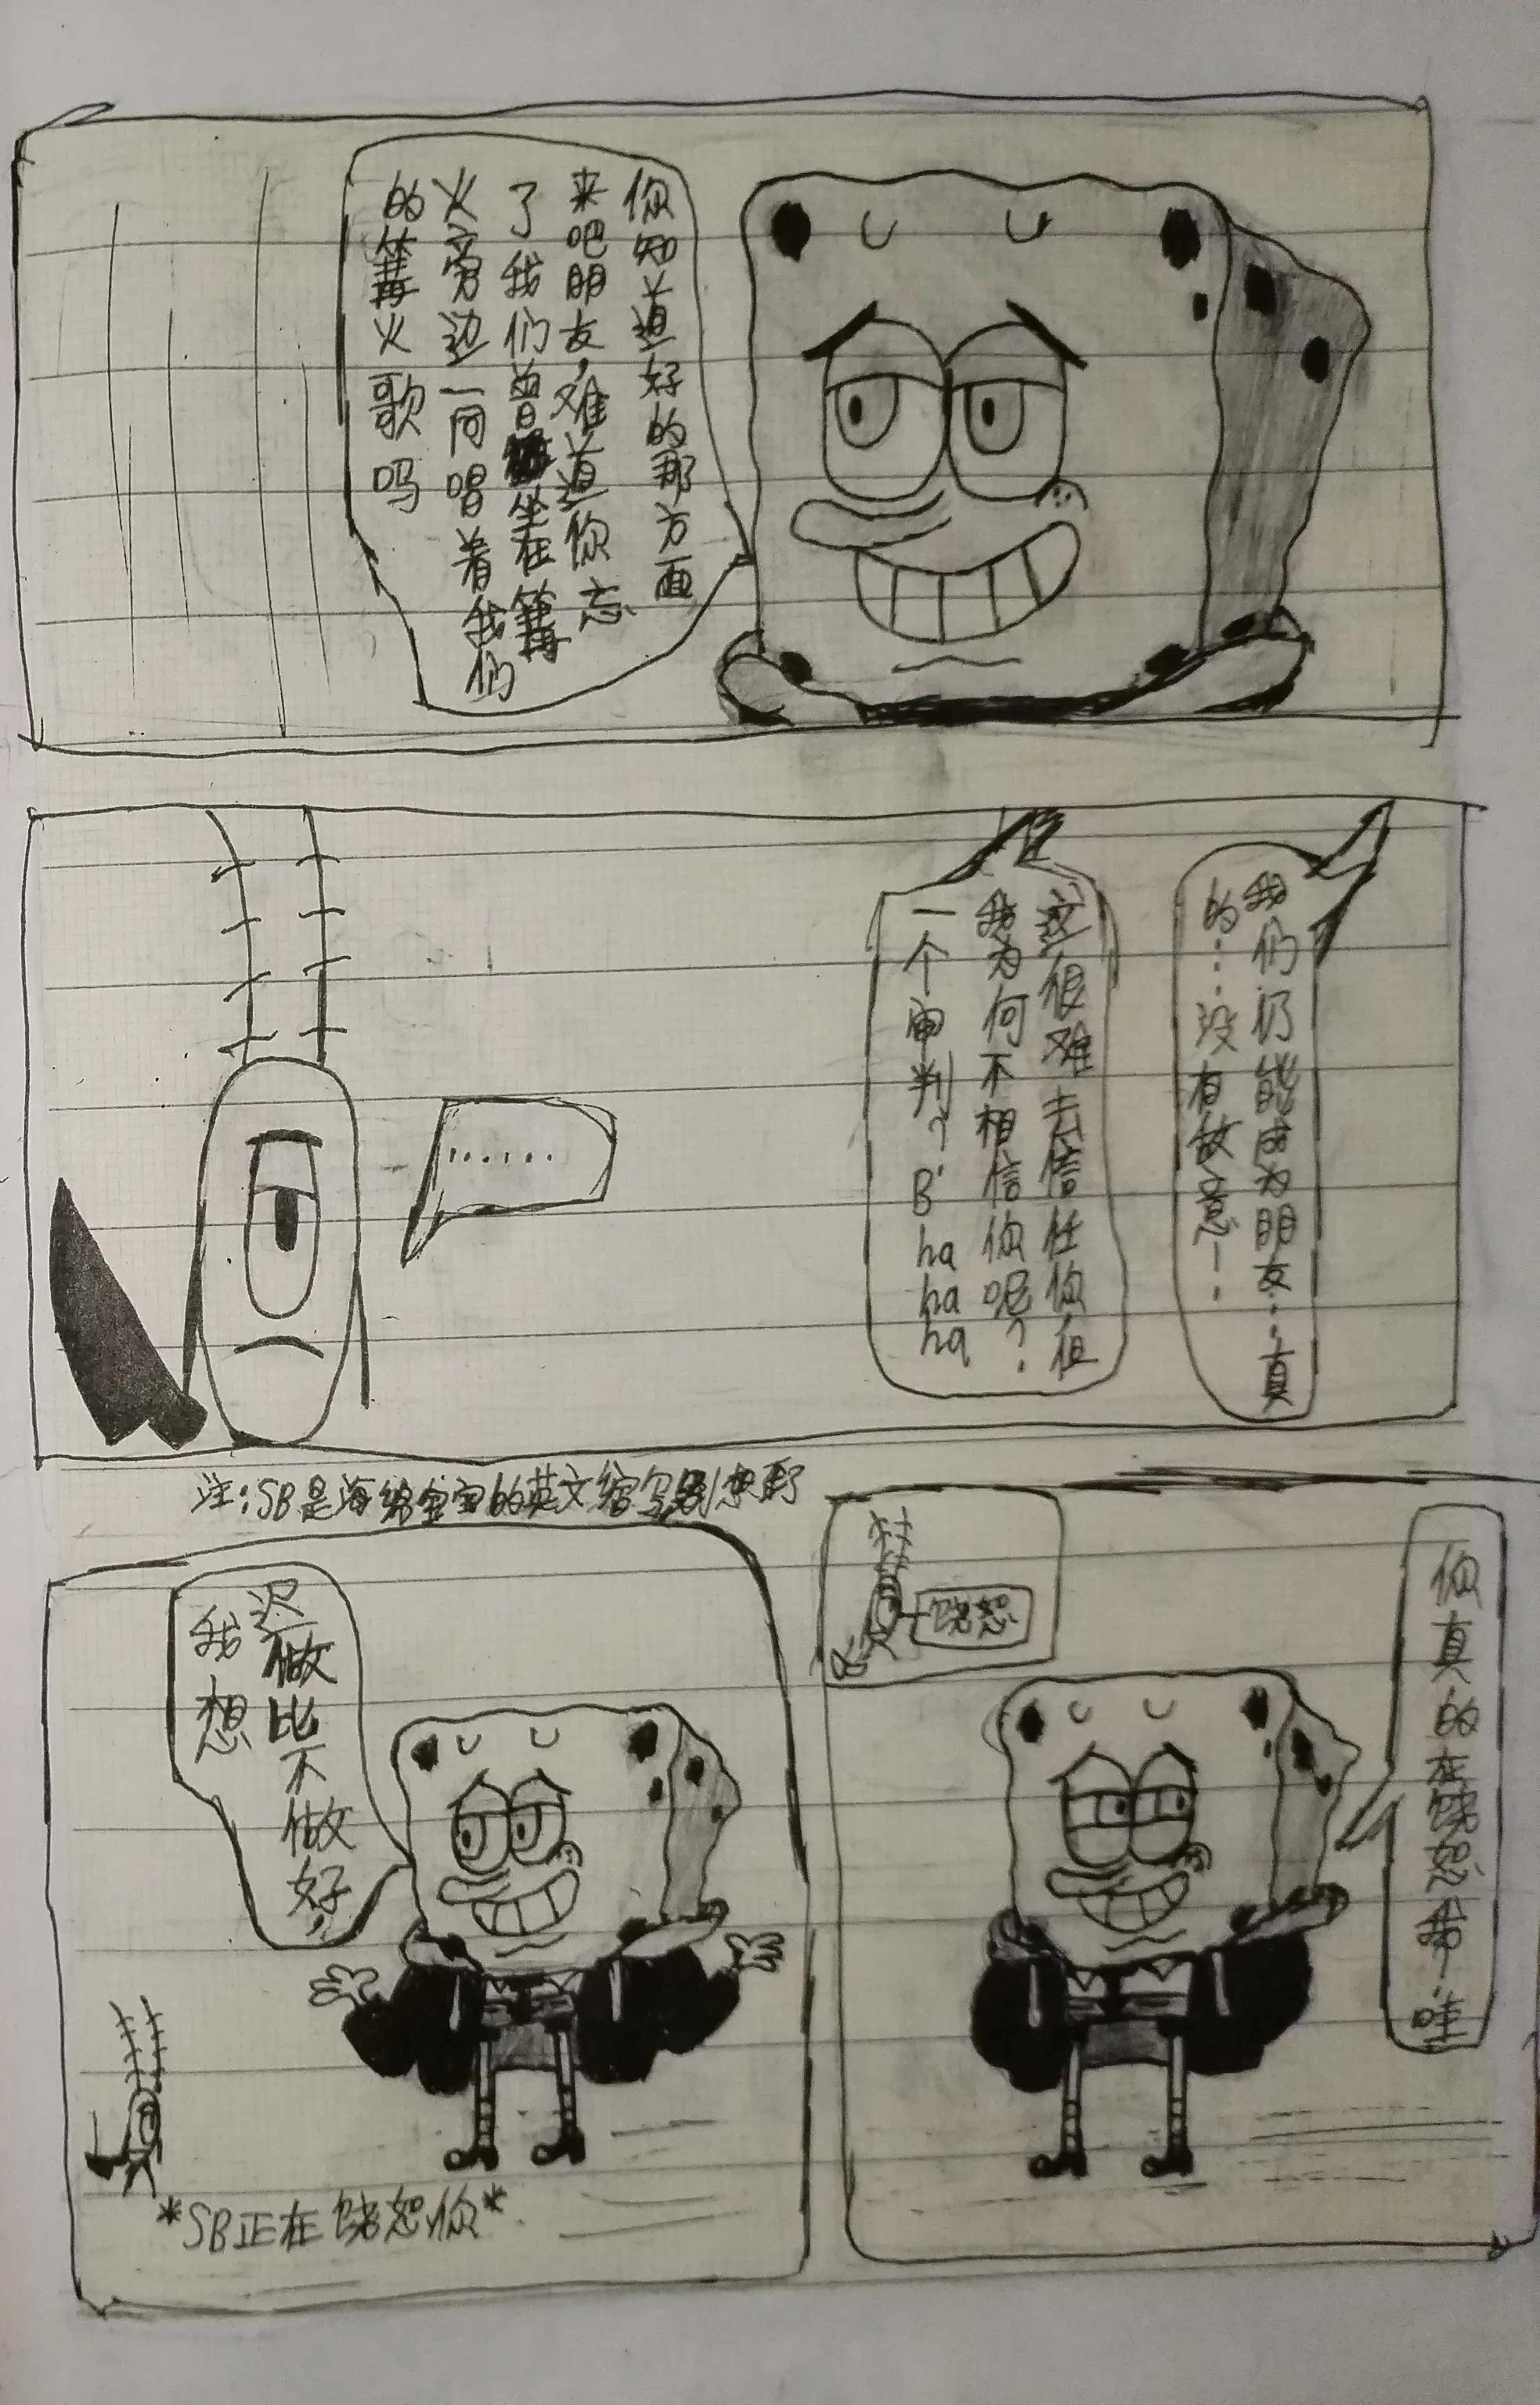 你知道好的那方面
来吧朋友,难道你忘
了我们曾坐在篝
火旁边一同唱着我们
的篝火歌吗
我们仍能成为朋友…真
的……没有故意-..
这很难去信任你但
我为何不相信你呢?
一个审判?B'hahaha
......
注:SB是海绵宝宝的英文缩写别想歪了
你真的在饶恕我..哇
饶恕
迟做比不做好,
我想
*SB正在饶恕你*